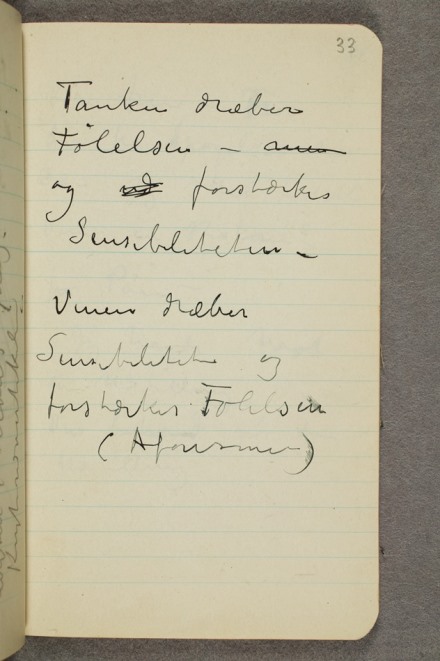 33
Tanken dræber
Følelsen – men
og forstærker
Sensibiliteten –
Vinen dræber
Sensibilitet og
forstærker Følelsen
(Aforismer)